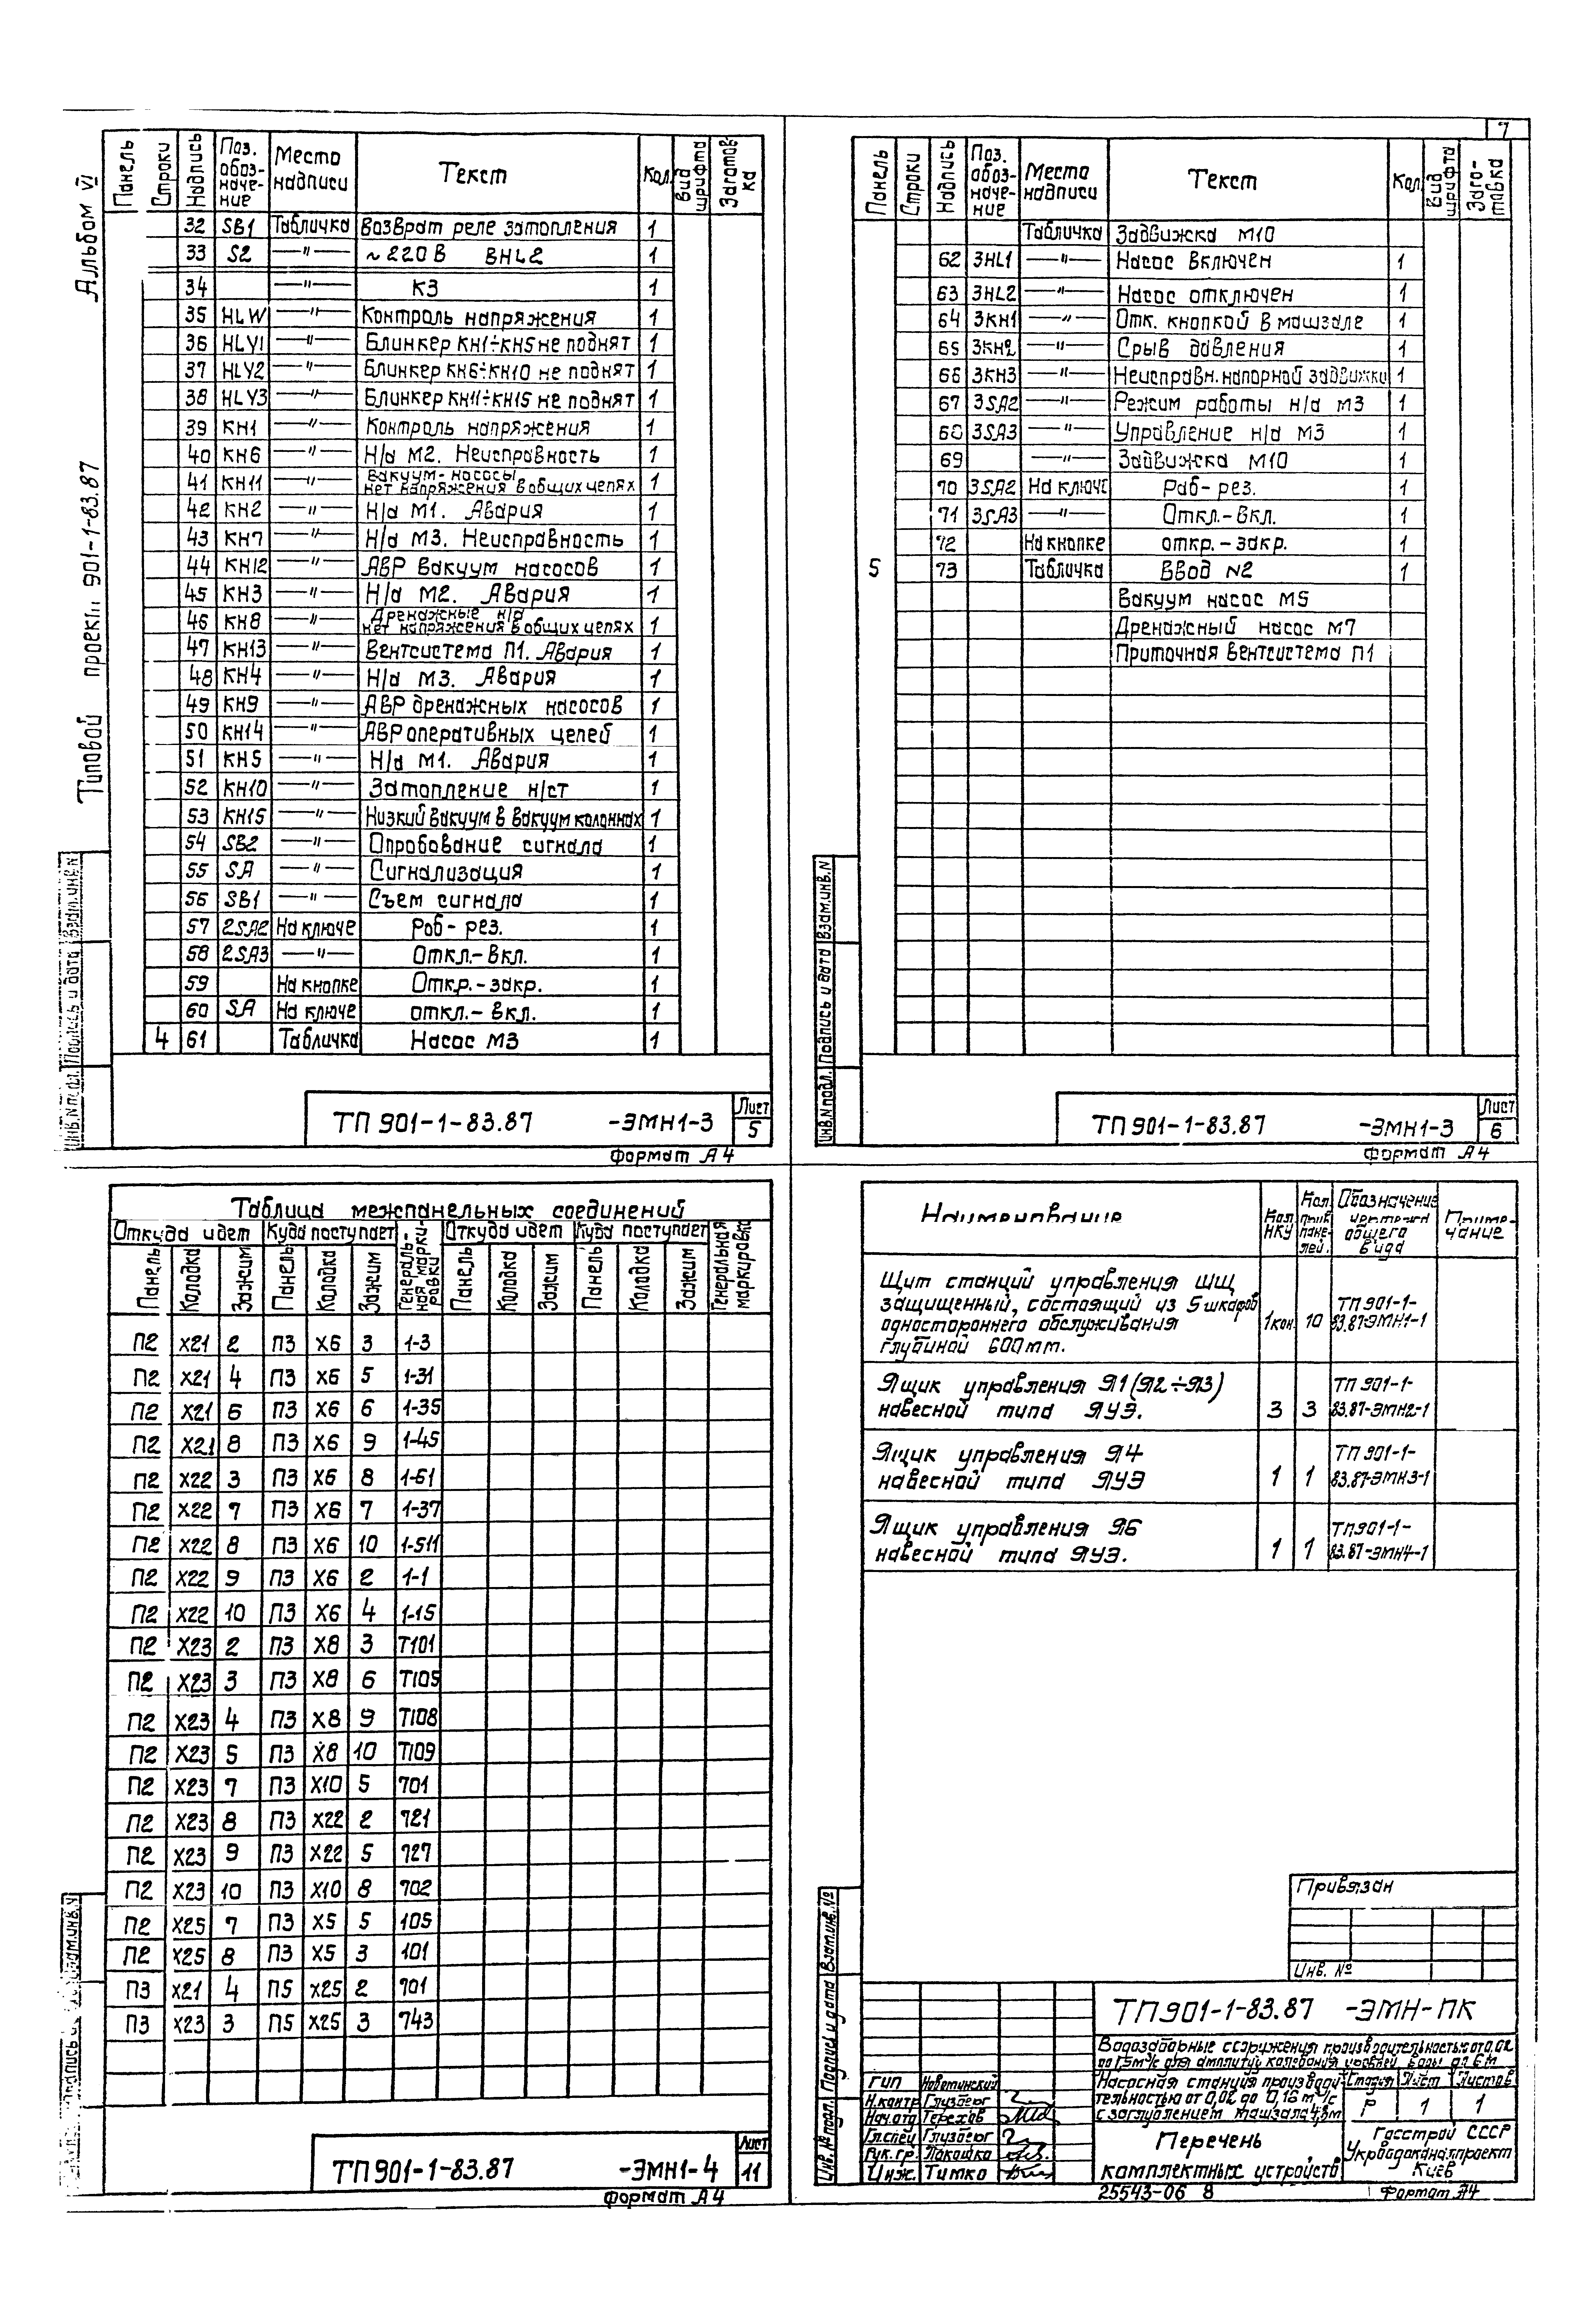 Альбом VI
Типовой проект 901-1-83.87
Панель Строки Надпись Поз. обозначение Место надписи Текст Кол. Вид шрифта Заготовка
32 SB1 Табличка Возврат реле затопления 1
33 S2 —"— ~220В ВНL2 1
34 —"— К3 1
35 HLW —"— Контроль напряжения 1
36 HLY1 —"— Блинкер КН1÷КН5 не поднят 1
37 HLY2 —"— Блинкер КН6÷КН10 не поднят 1
38 HLY3 —"— Блинкер КН11÷КН15 не поднят 1
39 КН1 —"— Контроль напряжения 1
40 КН6 —"— Н/а М2. Неисправность 1
41 КН11 —"— Вакуум-насосы нет напряжения в общих цепях 1
42 КН2 —"— Н/а М1. Авария 1
43 КН7 —"— Н/а М3. Неисправность 1
44 КН12 —"— АВР вакуум насосов 1
45 КН3 —"— Н/а М2. Авария 1
46 КН8 —"— Дренажные н/а нет напряжения в общих цепях 1
47 КН13 —"— Вентсистема П1. Авария 1
48 КН4 —"— Н/а М3. Авария 1
49 КН9 —"— АВР дренажных насосов 1
50 КН14 —"— АВР оперативных цепей 1
51 КН5 —"— Н/а М1. Авария 1
52 КН10 —"— Затопление н/ст 1
53 КН15 —"— Низкий вакуум в вакуум колоннах 1
54 SB2 —"— Опробование сигнала 1
55 SA —"— Сигнализация 1
56 SB1 —"— Съем сигнала 1
57 2SA2 На ключе Раб-рез. 1
58 2SA3 —"— Откл.-Вкл. 1
59 На кнопке Откр.-закр. 1
60 SA На ключе откл.-вкл. 1
4 61 Табличка Насос М3 1
Инв.N подл. Подпись и дата Взам.инв.N
ТП 901-1-83.87 -ЭМН1-3 Лист 5
Формат А4
7
Панель Строки Надпись Поз. обозначение Место надписи Текст Кол. Вид шрифта Заготовка
Табличка Задвижка М10
62 3HL1 —"— Насос включен 1
63 3HL2 —"— Насос отключен 1
64 3КН1 —"— Отк. кнопкой в машзале 1
65 3КН2 —"— Срыв давления 1
66 3КН3 —"— Неисправн. напорной задвижки 1
67 3SA2 —"— Режим работы н/а М3 1
68 3SA3 —"— Управление н/а М3 1
69 —"— Задвижка М10 1
70 3SA2 На ключе Раб-рез. 1
71 3SA3 —"— Откл.-Вкл. 1
72 На кнопке откр.-закр. 1
5 73 Табличка Ввод N2 1
Вакуум насос М5
Дренажный насос М7
Приточная вентсистема П1
Инв.N подл. Подпись и дата Взам.инв.N
ТП 901-1-83.87 -ЭМН1-3 Лист 6
Формат А4
Таблица межпанельных соединений
Откуда идет Куда поступает Генеральная маркировка Откуда идет Куда поступает Генеральная маркировка
Панель Колодка Зажим Панель Колодка Зажим Панель Колодка Зажим Панель Колодка Зажим
П2 Х21 2 П3 Х6 3 1-3
П2 Х21 4 П3 Х6 5 1-31
П2 Х21 6 П3 Х6 6 1-35
П2 Х21 8 П3 Х6 9 1-45
П2 Х22 3 П3 Х6 8 1-61
П2 Х22 7 П3 Х6 7 1-37
П2 Х22 8 П3 Х6 10 1-511
П2 Х22 9 П3 Х6 2 1-1
П2 Х22 10 П3 Х6 4 1-15
П2 Х23 2 П3 Х8 3 Т101
П2 Х23 3 П3 Х8 6 Т105
П2 Х23 4 П3 Х8 9 Т108
П2 Х23 5 П3 Х8 10 Т109
П2 Х23 7 П3 Х10 5 701
П2 Х23 8 П3 Х22 2 721
П2 Х23 9 П3 Х22 5 727
П2 Х23 10 П3 Х10 8 702
П2 Х25 7 П3 Х5 5 105
П2 Х25 8 П3 Х5 3 101
П3 Х21 4 П5 Х25 2 701
П3 Х23 3 П5 Х25 3 743
ТП 901-1-83.87 -ЭМН1-4 Лист 11
Формат А4
Наименование Кол. НКУ Кол. прив. панелей. Обозначение чертежа общего вида Примечание
Щит станций управления ШЩ
защищенный, состоящий из 5 шкафов
одностороннего обслуживания
глубиной 600мм. 1кон. 10 ТП 901-1-83.87-ЭМН1-1
Ящик управления Я1 (Я2÷Я3)
навесной типа ЯУЭ. 3 3 ТП 901-1-83.87-ЭМН2-1
Ящик управления Я4
навесной типа ЯУЭ 1 1 ТП 901-1-83.87-ЭМН3-1
Ящик управления Я6
навесной типа ЯУЭ. 1 1 ТП901-1-83.87-ЭМН4-1
Привязан
Инв. №
Инв. № подл. Подпись и дата Взам.инв.№
ТП 901-1-83.87 -ЭМН-ПК
Водозаборные сооружения производительностью от 0,02
до 1,5м³/с для амплитуд колебания уровней воды до 6м
Насосная станция производительностью от 0,02 до 0,16 м³/с
с заглублением машзала 4,8м
Стадия Лист Листов
Р 1 1
ГИП Новотинский
Н.контр Глузберг
Нач.отд Терехов
Гл.спец Глузберг
Рук.гр. Пакошко
Инж. Тимко
Перечень
комплектных устройств
Госстрой СССР
Укрводоканалпроект
Киев
25543-06 8
Формат А4